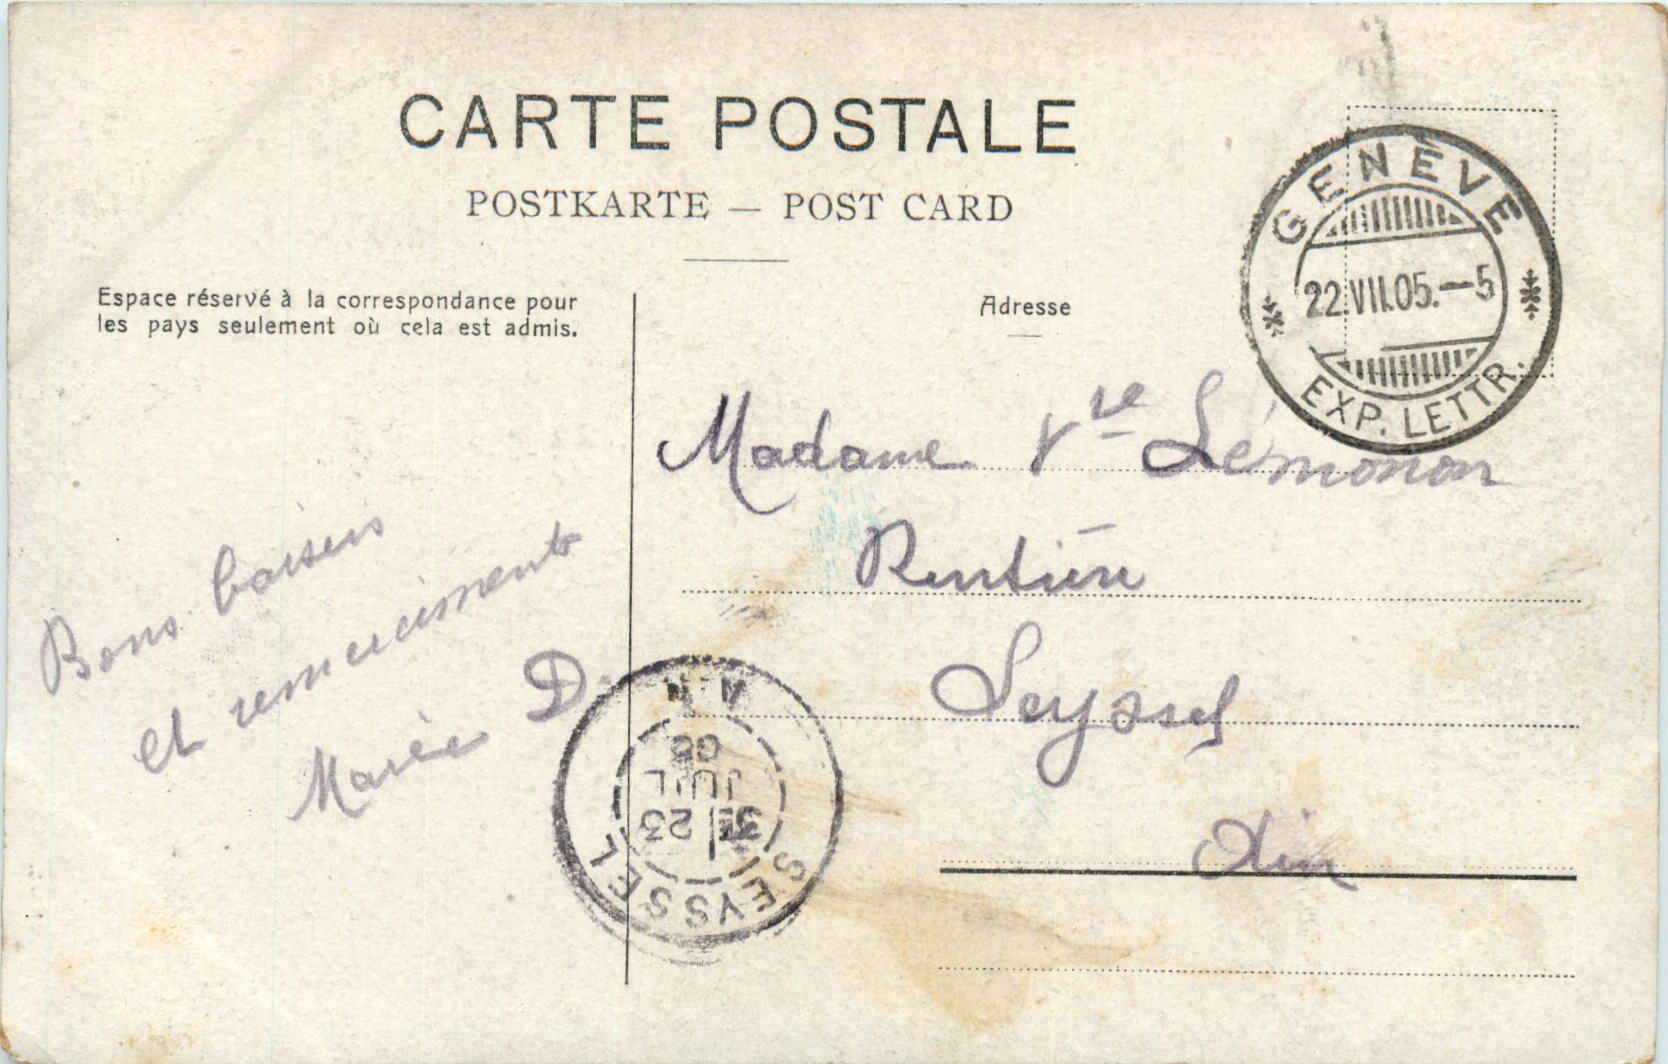 CARTE POSTALE
POSTKARTE — POST CARD
Espace réservé à la correspondance pour
les pays seulement où cela est admis.
Adresse
GENÈVE
22.VII.05.—5
EXP. LETTR.
Madame Vve Lémonon
Rentière
Seyssel
Ain
Bons baisers
et remerciements
Marie D.
AIN
05
JUIL
23
SEYSSEL